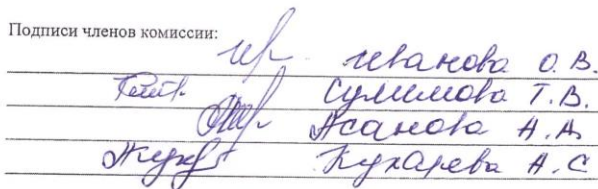 Подписи членов комиссии:
Иванова О.В.
Сулимова Т.В.
Асанова А.А
Кухарева А.С